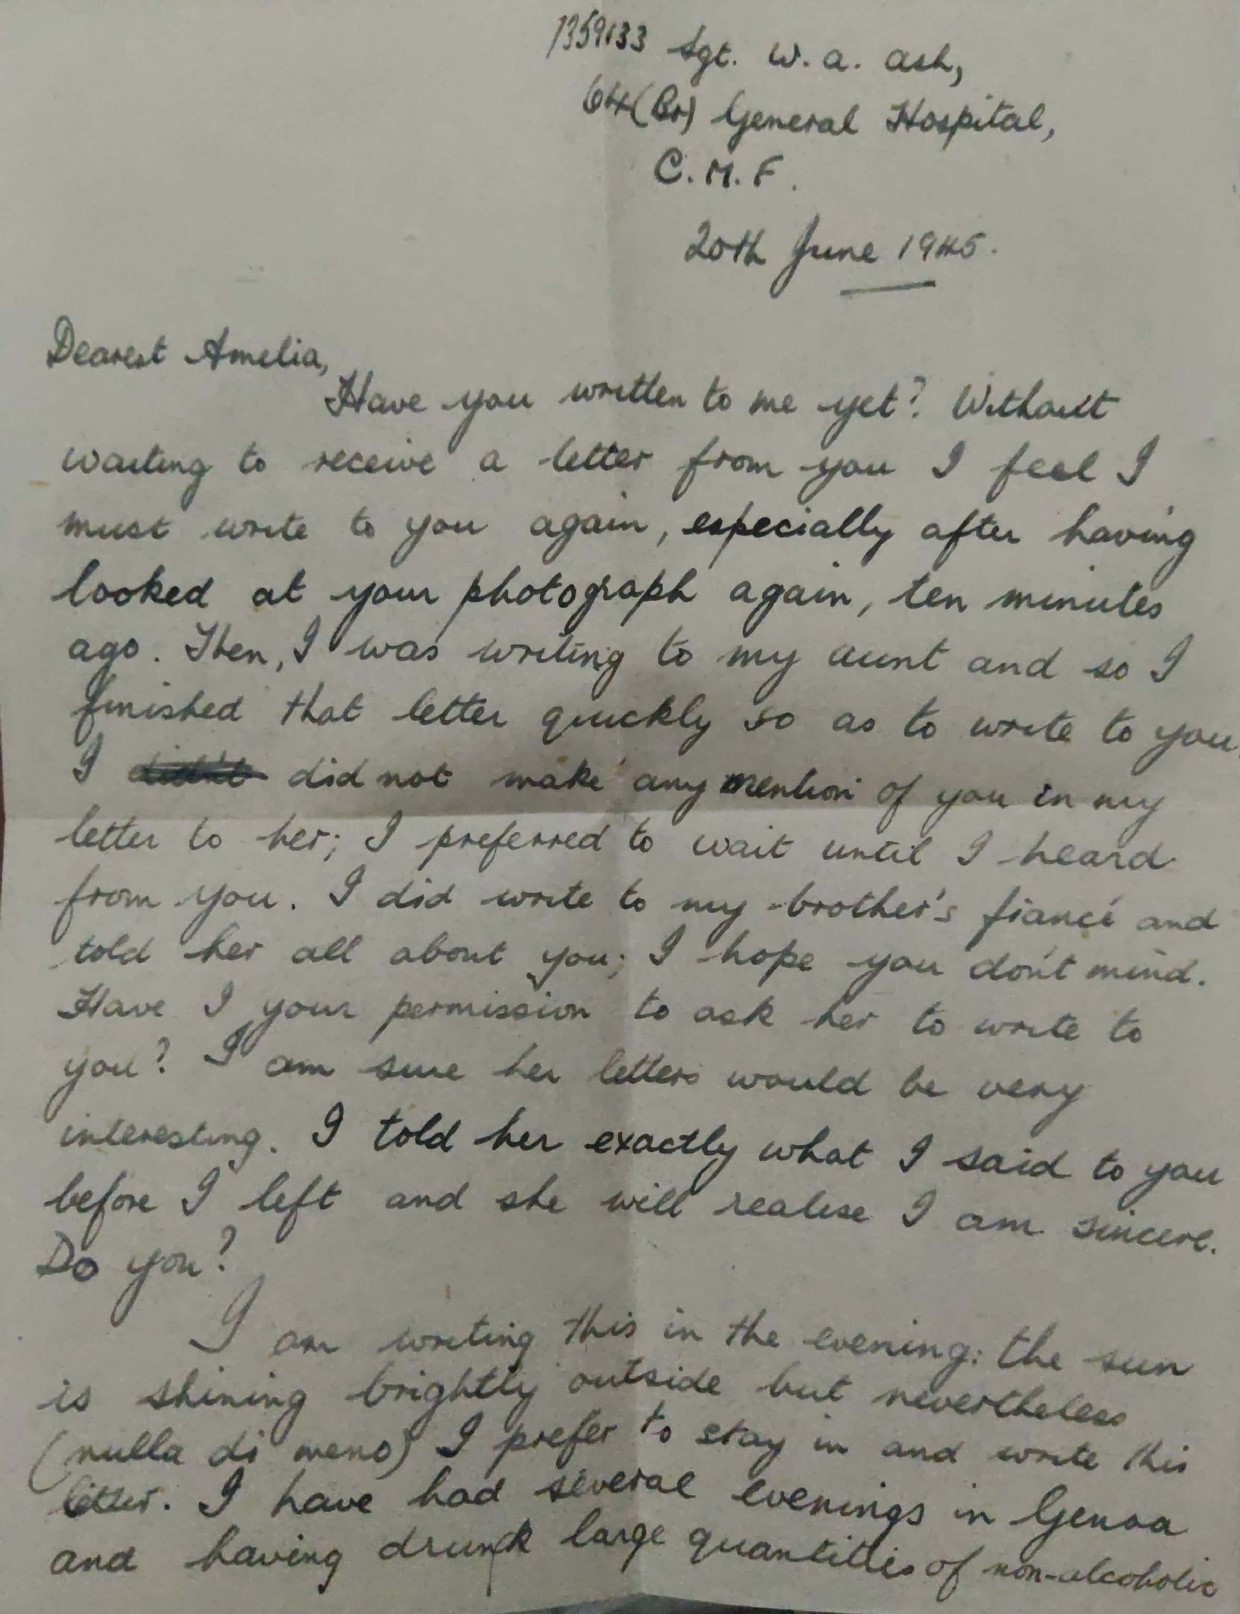 7359133 Sgt. W. A. Ash,
64 (Br) General Hospital,
C. M. F.
20th June 1945.
Dearest Amelia,
Have you written to me yet? Without
waiting to receive a letter from you I feel I
must write to you again, especially after having
looked at your photograph again, ten minutes
ago. Then, I was writing to my aunt and so I
finished that letter quickly so as to write to you.
I didn't did not make any mention of you in my
letter to her; I preferred to wait until I heard
from you. I did write to my brother's fiancé and
told her all about you; I hope you don't mind.
Have I your permission to ask her to write to
you? I am sure her letters would be very
interesting. I told her exactly what I said to you
before I left and she will realise I am sincere.
Do you?
I am writing this in the evening: the sun
is shining brightly outside but nevertheless
(nulla di meno) I prefer to stay in and write this
letter. I have had several evenings in Genoa
and having drunk large quantities of non-alcoholic